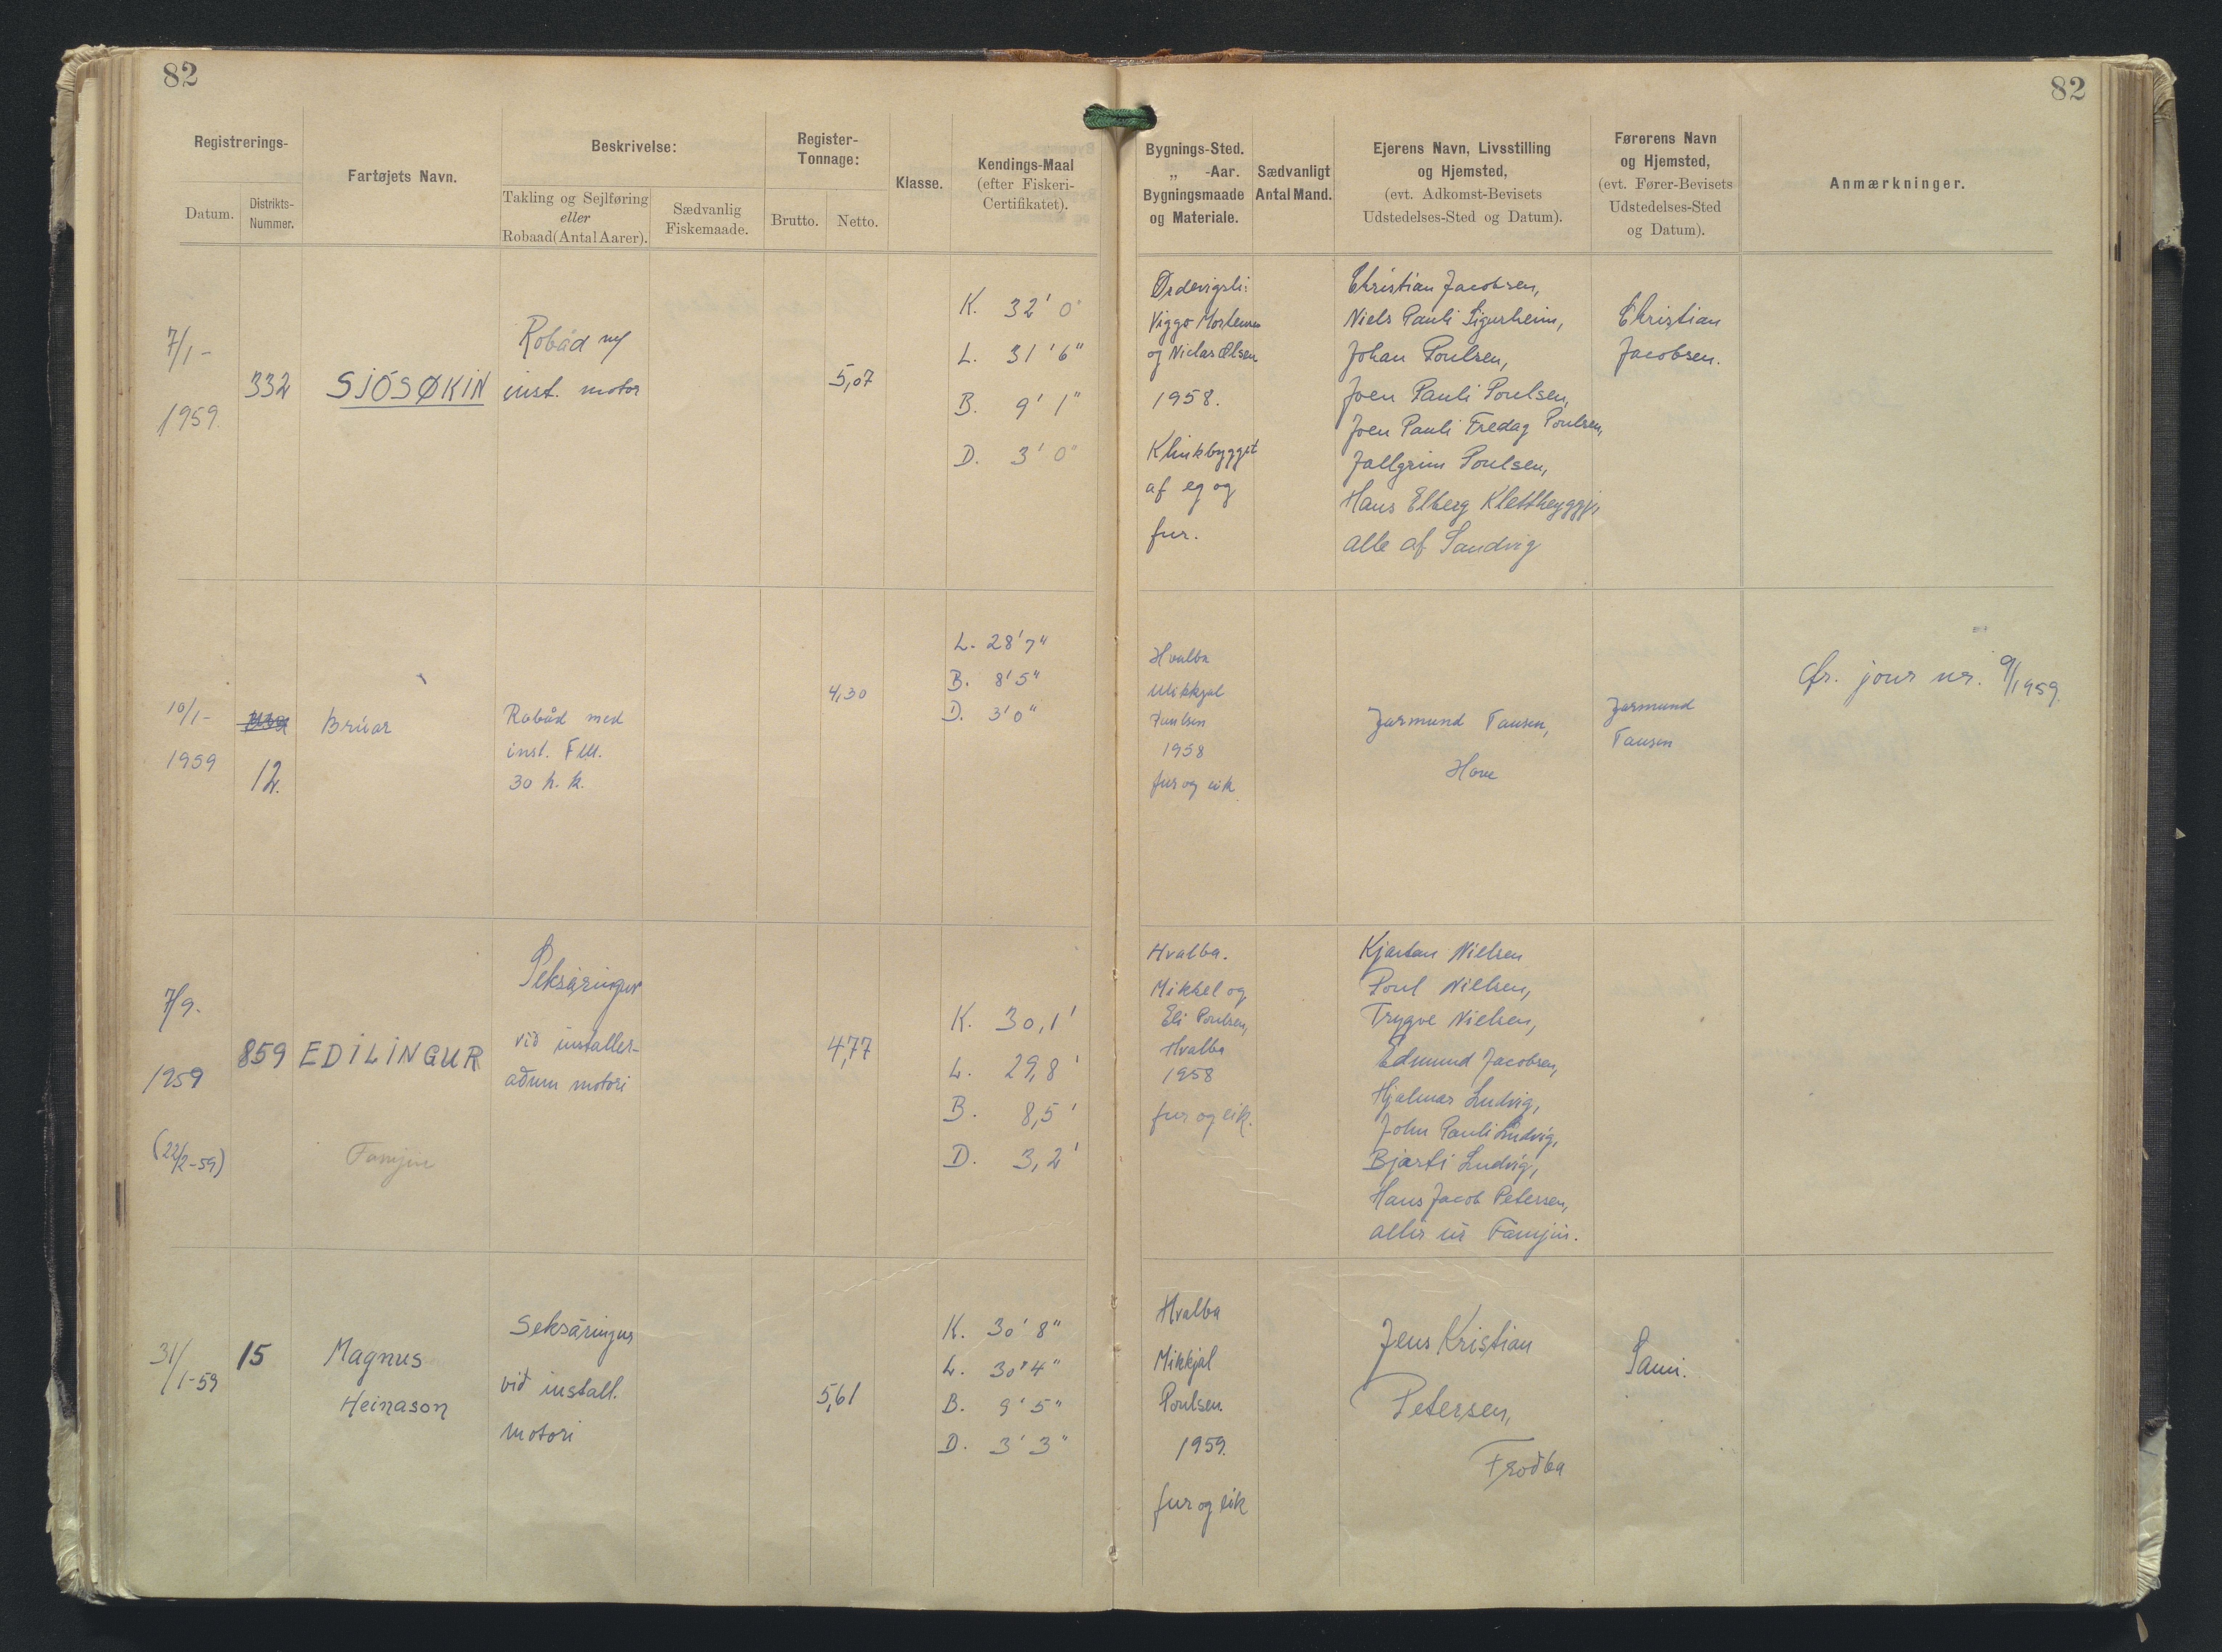 82
82
Registrerings-
Datum.
Distrikts-
Nummer.
Fartøjets Navn.
Beskrivelse:
Takling og Sejlføring
eller
Robaad (Antal Aarer).
Sædvanlig
Fiskemaade.
Register-
Tonnage:
Brutto.
Netto.
Klasse.
Kendings-Maal
(efter Fiskeri-
Certifikatet).
Bygnings-Sted.
„ -Aar.
Bygningsmaade
og Materiale.
Sædvanligt
Antal Mand.
Ejerens Navn, Livsstilling
og Hjemsted,
(evt. Adkomst-Bevisets
Udstedelses-Sted og Datum).
Førerens Navn
og Hjemsted,
(evt. Fører-Bevisets
Udstedelses-Sted
og Datum).
Anmærkninger.
7/1-
1959
332
SJÓSØKIN
Robåd m/
inst. motor
5,07
K. 32' 0"
L. 31' 6"
B. 9' 1"
D. 3' 0"
Ørdevigsli:
Viggo Mortensen
og Niclas Olsen
1958.
Klinkbygget
af eg og
fur.
Christian Jacobsen,
Niels Pauli Sigurheim,
Johan Poulsen,
Joen Pauli Poulsen,
Joen Pauli Fredag Poulsen,
Jallgrim Poulsen,
Hans Elberg Klettheyggji
alle af Sandvig
Christian
Jacobsen.
10/1-
1959
12.
Brúar
Robåd med
inst. F.M.
30 h.k.
4,30
L. 28' 7"
B. 8' 5"
D. 3' 0"
Hvalba
Mikkjal
Poulsen
1958
fur og eik
Jarmund Tausen,
Hove
Jarmund
Tausen
Cfr. jour nr. 9/1959
7/9.
1959
(22/2-59)
859
EDILINGUR
Famjin
Seksæringur
við installer-
aðum motori
4,77
K. 30,1'
L. 29,8'
B. 8,5'
D. 3,2'
Hvalba.
Mikkel og
Eli Poulsen,
Hvalba
1958
fur og eik.
Kjartan Nielsen
Poul Nielsen,
Trygve Nielsen,
Edmund Jacobsen,
Hjalmar Ludvig,
John Pauli Ludvig,
Bjarti Ludvig,
Hans Jacob Petersen,
allir úr Famjin.
31/1-59
15
Magnus
Heinason
Seksæringur
við install.
motori
5,61
K. 30' 8"
L. 30' 4"
B. 9' 5"
D. 3' 3"
Hvalba
Mikkjal
Poulsen.
1959.
fur og eik
Jens Kristian
Petersen,
Froðba
Sami.